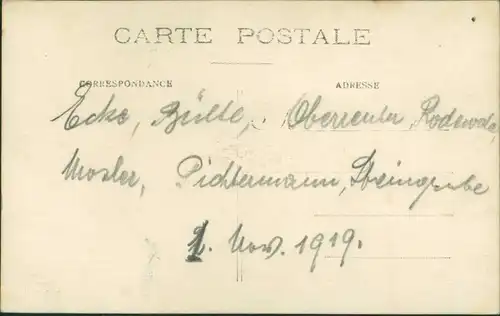 CARTE POSTALE
CORRESPONDANCE
ADRESSE
Ecke, Bülte, Oberreuter, Rodewald,
Mosler, Pichtermann, Steingrube
1. Nov. 1919.